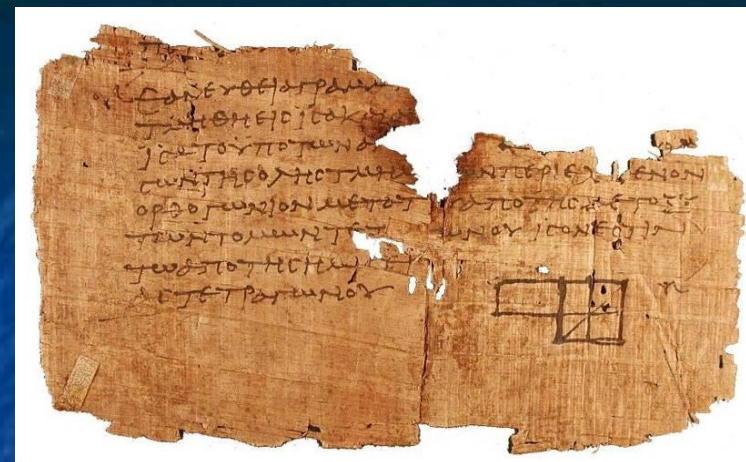 ΕΑΝ ΕΥΘΕΙΑ ΓΡΑΜ
ΤΜΗΘΗ ΕΙϹ ΙϹΑ ΚΑΙ
ΙϹΑ ΤΟ ΥΠΟ ΤΩΝ
ϹΩΝ ΤΗϹ ΟΛΗϹ ΤΜΗΜ ΩΝ ΠΕΡΙΕΧ ΜΕΝΟΝ
ΟΡΘΟΓΩΝΙΟΝ ΜΕΤΑ ΤΟΥ ΑΠΟ ΤΗϹ ΜΕΤΟΞΥ
ΤΩΝ ΤΟΜΩΝ ΤΕΤ ΩΝΟΥ ΙϹΟΝ ΕϹΤΙΝ
ΤΩ ΑΠΟ ΤΗϹ ΗΜΙϹΕΙ
ΑϹ ΤΕΤΡΑΓΩΝΟΥ